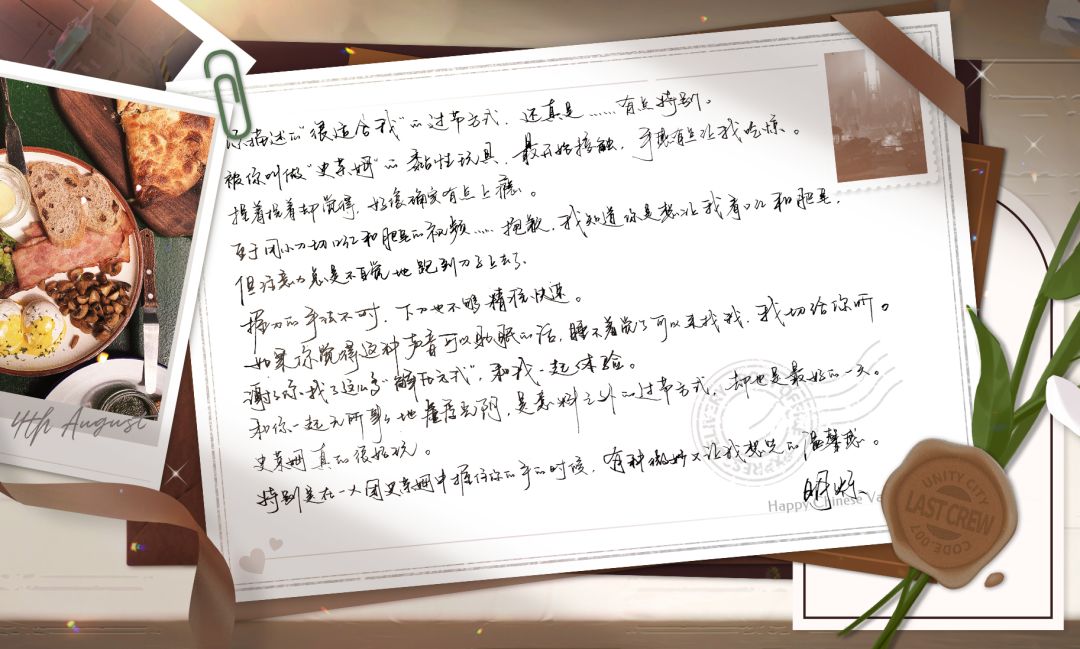 你描述的“很适合我”的过节方式，还真是……有点特别。
被你叫做“史莱姆”的黏性玩具，最开始接触，手感有点让我吃惊。
捏着捏着却觉得，好像确实有点上瘾。
至于用小刀切口红和肥皂的视频……抱歉，我知道你是想让我看口红和肥皂，
但注意力总是不自觉地跑到刀子上去了。
握刀的手法不对，下刀也不够精准快速。
如果你觉得这种声音可以助眠的话，睡不着觉了可以来找我，我切给你听。
谢谢你找了这么多“解压方式”，和我一起体验。
和你一起无所事事地虚度光阴，是意料之外的过节方式，却也是最好的一天。
史莱姆真的很好玩。
特别是在一大团史莱姆中握住你的手的时候，有种微妙又让我想笑的温馨感。
Happy Chinese Va
4th August
UNITY CITY
LAST CREW
CODE:007